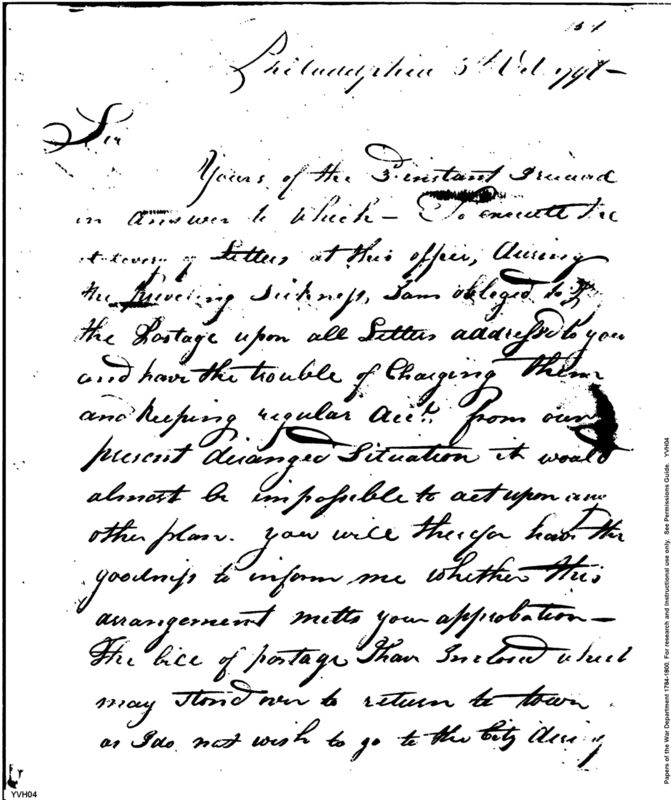 151
Philadelphia 5th Oct. 1797—
Sir
Yours of the 3 instant I received
in answer to which — To execute the
delivery of Letters at this office, during
the prevailing Sickness, I am obliged to
the Postage upon all Letters addressed to you
and have the trouble of Charging them
and keeping regular Acct. From our
present deranged Situation it would
almost be impossible to act upon any
other plan. you will therefor have the
goodness to inform me whether this
arrangement meets your approbation—
The bill of postage I have Inclosed which
may stand over to return to town
as I do not wish to go to the City during
YVH04
Papers of the War Department 1784-1800. For research and instructional use only. See Permissions Guide. YVH04